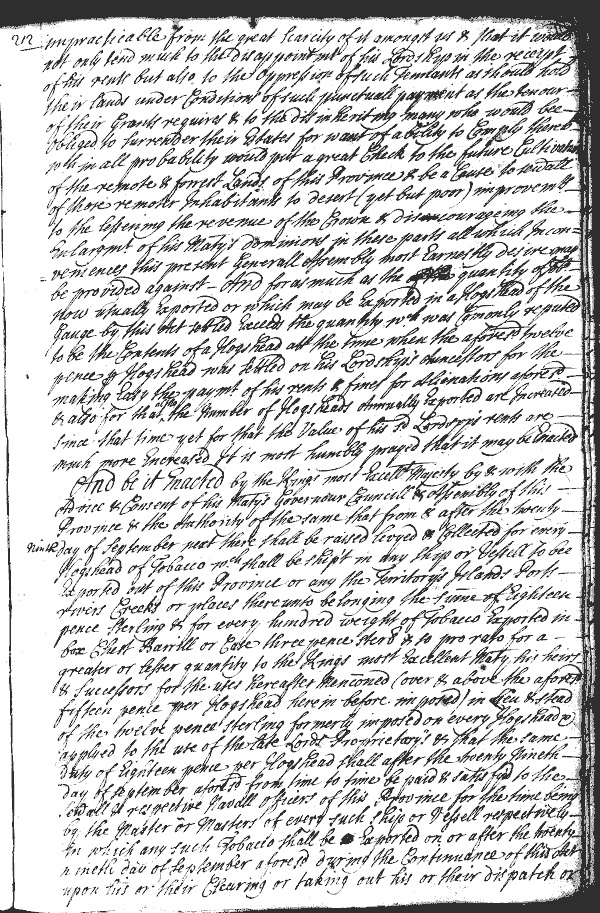 212 impracticable from the great scarcity of it amongst us & that it would
not only tend much to the disappointmt of his Lordship in the receipt
of his rents but also to the Oppression of such Tennants as should hold
their lands under Conditions of such punctuall payment as the tenour
of their Grants requires & to the disinheriting many who would bee
obliged to surrender their Estates for want of ability to Comply therew
wth in all probability would put a great Check to the future Cultivation
of the remote & forrest Lands of this Province & be a Cause to
of those remoter Inhabitants to desert (yet but poor) improvemts
to the lessening the revenue of the Crown & discouraging the
Enlargmt of his Matys dominions in these parts all which Incon
veniences this present Generall Assembly most Earnestly desire may
be provided against - And forasmuch as the quantity of
now usually Exported or which may be Exported in a Hogshead of the
Gauge by this Act settled Exceeds the quantity wch was Comonly reputed
to be the Contents of a Hogshead att the time when the aforesd twelve
pence p Hogshead was settled on his Lordships Ancestors for the
making Easy the paymt of his rents & fines for Allienations aforesd
& also for that the Number of Hogsheads Annually Exported are Increased
since that time yet for that the Value of his sd Lordspps rents are
much more Increased It is most humbly prayed that it may be Enacted
And be it Enacted by the Kings most Excellt Majesty by & with the
Advice & Consent of his Matys Governour Councill & Assembly of this
Province & the Authority of the same that from & after the twenty
Ninth day of September next there shall be raised levyed & Collected for every
Hogshead of Tobacco wch shall be ship't in any ship or Vessell to bee
Exported out of this Province or any the Territorys Islands Ports
rivers Creeks or places thereunto belonging the Sume of Eighteen
pence Sterling & for every hundred weight of Tobacco Exported in
box Chest Barrill or Case three pence Sterl & so pro rato for a
greater or lesser quantity to the Kings most Excellent Maty his heirs
& Successors for the uses hereafter Menconed (over & above the aforesd
fifteen pence per Hogshead herein before imposed) in Lieu & stead
of the twelve pence sterling formerly imposed on every Hogshead &
applyed to the use of the late Lords Proprietarys & that the same
duty of Eighteen pence per Hogshead shall after the twenty Nineth
day of September aforesd from time to time be paid & satisfyd to the
sevall & respective Navall officers of this Province for the time being
by the Master or Masters of every such ship or Vessell respectively
In which any such Tobacco shall be Exported on or after the twenty
nineth day of September aforesd during the Continuance of this Act
upon his or their Clearing or taking out his or their dispatch or